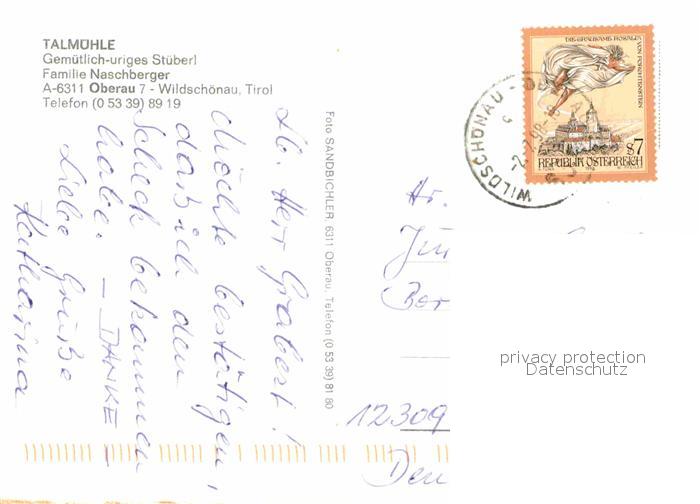 TALMÜHLE
Gemütlich-uriges Stüberl
Familie Naschberger
A-6311 Oberau 7 - Wildschönau, Tirol
Telefon (0 53 39) 89 19
Lb. Herr Grabert!
Möchte bestätigen,
daß ich den
Scheck bekommen
habe. – DANKE –
Liebe Grüße
Katharina
Foto SANDBICHLER, 6311 Oberau, Telefon (0 53 39) 81 80
DIE GRAUSAME ROSALIA
VON FORCHTENSTEIN
S7
REPUBLIK ÖSTERREICH
WILDSCHÖNAU
Hr.
Jü
Ber
12309
Den
privacy protection
Datenschutz